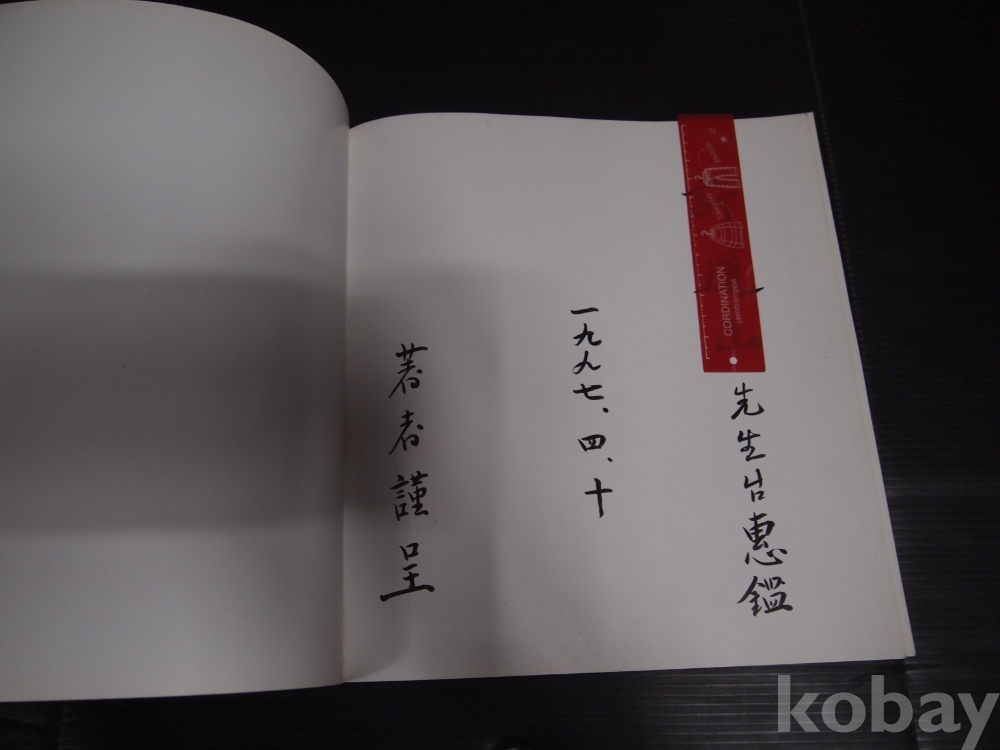 先生台惠鑑
一九九七、四、十
著者謹呈
CORDINATION
jambangee
kobay